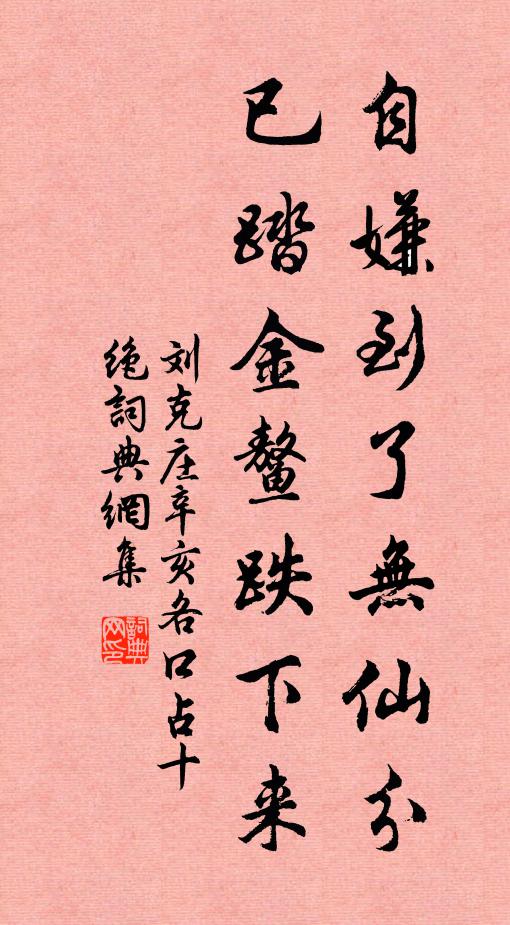 自嫌到了無仙分
已踏金鰲跌下来
刘克庄辛亥各口占十
绝詞典網集
詞典网印